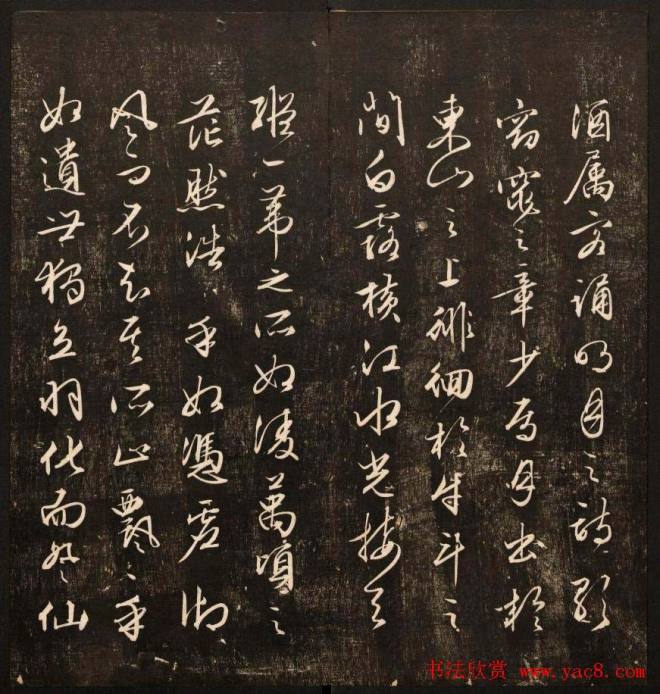 酒属客誦明月之詩歌
窈窕之章少焉月出於
東山之上徘徊於牛斗之
間白露橫江水光接天
縱一葦之所如凌萬頃之
茫然浩浩乎如憑虛御
風而不知其所止飄飄乎
如遺世獨立羽化而登仙
书法欣赏 www.yac8.com